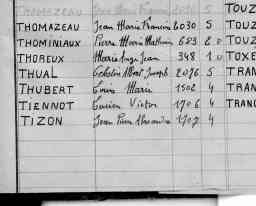 THOMAZEAU Jean Marie Francis 6030 5 TOUZ
THOMINIAUX Pierre Marie Mathurin 683 TOUZ
THOREUX Marie Ange Jean 348 TOXE
THUAL Albert Joseph 2076 5 TRAN
THUBERT Louis Marie 1502 4 TRAN
TIENNOT Lucien Victor 1706 4 TRANC
TIZON Jean Pierre Alexandre 1707 4